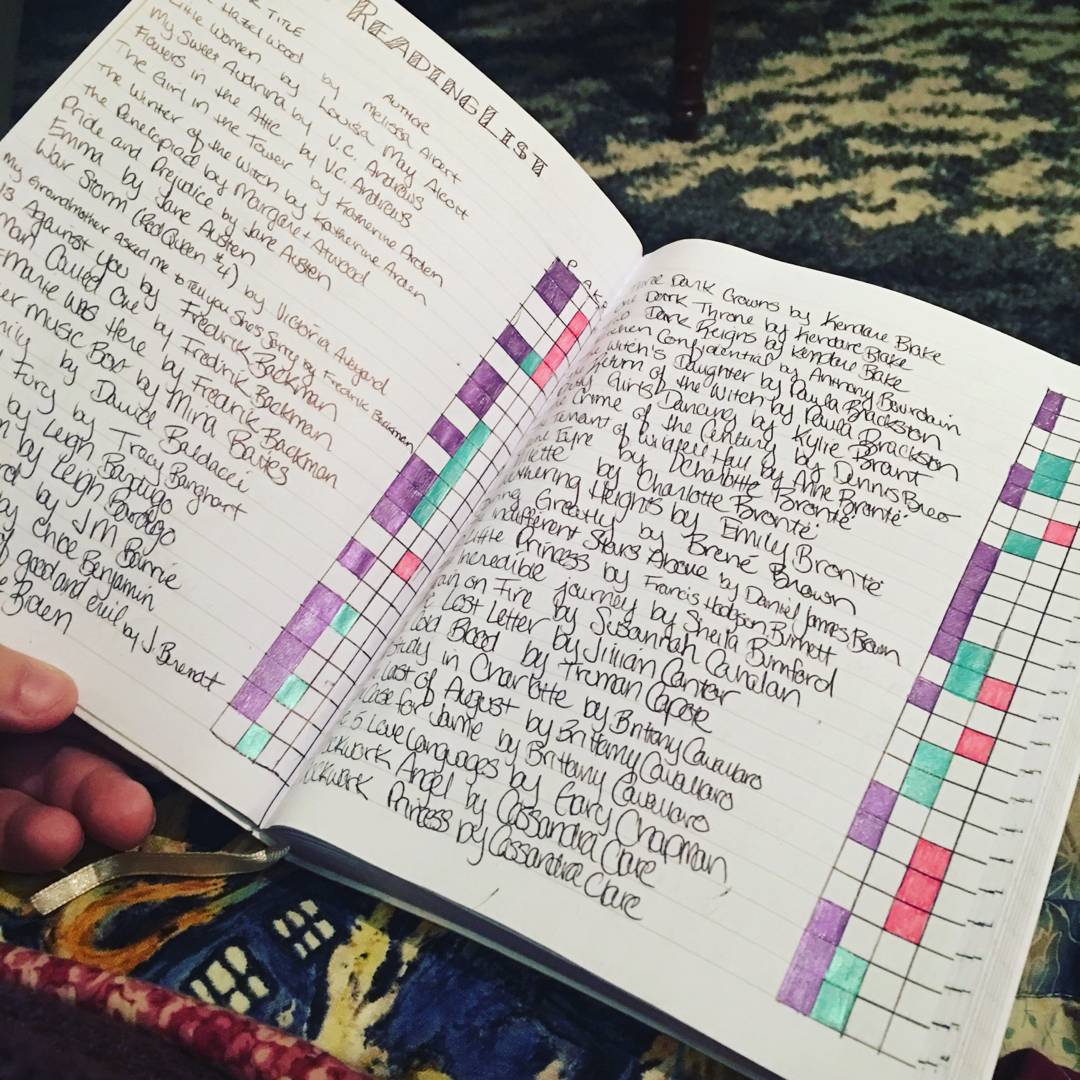 READING LIST
TITLE
AUTHOR
Hazel Wood by Melissa Albert
Little Women by Louisa May Alcott
My Sweet Audrina by V.C. Andrews
Flowers in the Attic by V.C. Andrews
The Girl in the Tower by Katherine Arden
The Winter of the Witch by Katherine Arden
The Penelopiad by Margaret Attwood
Pride and Prejudice by Jane Austen
Emma by Jane Austen
War Storm (Red Queen #4) by Victoria Aveyard
My Grandmother asked me to tell you She's Sorry by Fredrik Backman
Us Against You by Fredrik Backman
Man Called Ove by Fredrik Backman
was Here by Fredrik Backman
Music Box by Mira Bartes
by David Baldacci
Fury by Tracy Banghart
by Leigh Bardugo
by Leigh Bardugo
by JM Barrie
by Chloe Benjamin
good and evil by J. Berendt
Bowen
Dark Crowns by Kendare Blake
Dark Throne by Kendare Blake
Dark Reigns by Kendare Blake
Confidential by Anthony Bourdain
witch's Daughter by Paula Brackston
return of the Witch by Paula Brackston
Girls Dancing by Kylie Brant
Crime of the Century by Dennis Breo
Tenant of Wildfell Hall by Anne Brontë
Eyre by Charlotte Brontë
by Charlotte Brontë
Wuthering Heights by Emily Brontë
Greatly by Brené Brown
Indifferent Stars Above by Daniel James Brown
Little Princess by Francis Hodgson Burnett
Incredible journey by Sheila Burnford
on Fire by Susannah Cahalan
Last Letter by Jillian Cantor
Cold Blood by Truman Capote
Study in Charlotte by Brittany Cavallaro
Last of August by Brittany Cavallaro
Case for Jamie by Brittany Cavallaro
5 Love Languages by Gary Chapman
Clockwork Angel by Cassandra Clare
Clockwork Princess by Cassandra Clare